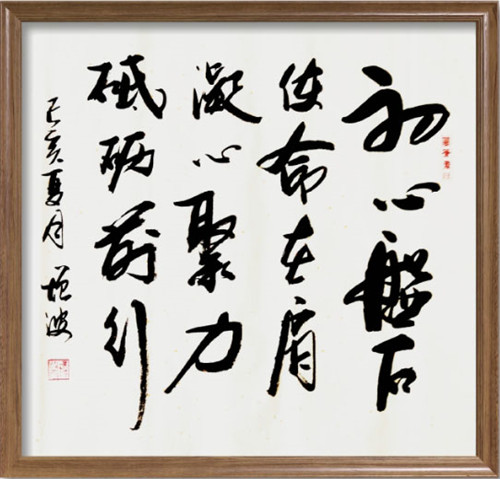 初心盤石
使命在肩
凝心聚力
砥砺前行
己亥夏月 增波